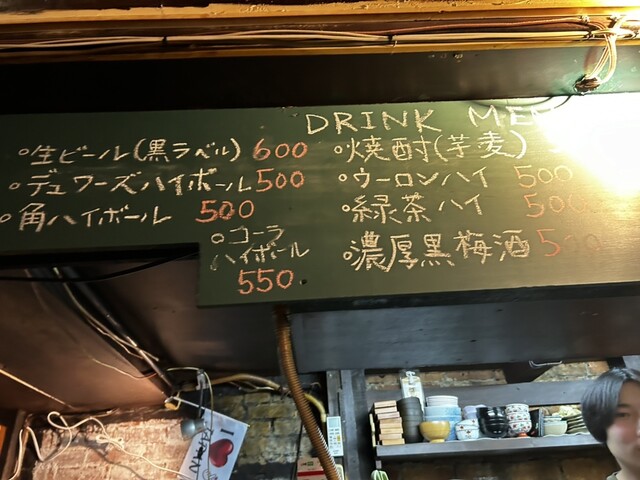 DRINK ME
◦生ビール(黒ラベル) 600
◦デュワーズハイボール500
◦角ハイボール 500
◦コーラ
ハイボール
550
◦焼酎(芋麦)
◦ウーロンハイ 500
◦緑茶ハイ 500
◦濃厚黒梅酒 500
I